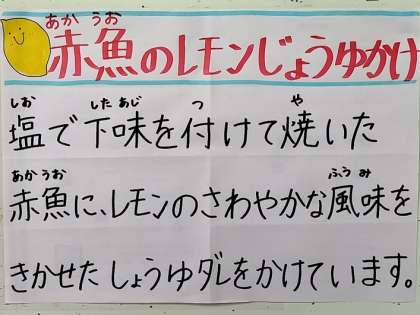 あか うお
赤魚のレモンじょうゆかけ
しお したあじ つ や
塩で下味を付けて焼いた
あかうお ふうみ
赤魚に、レモンのさわやかな風味を
きかせたしょうゆダレをかけています。